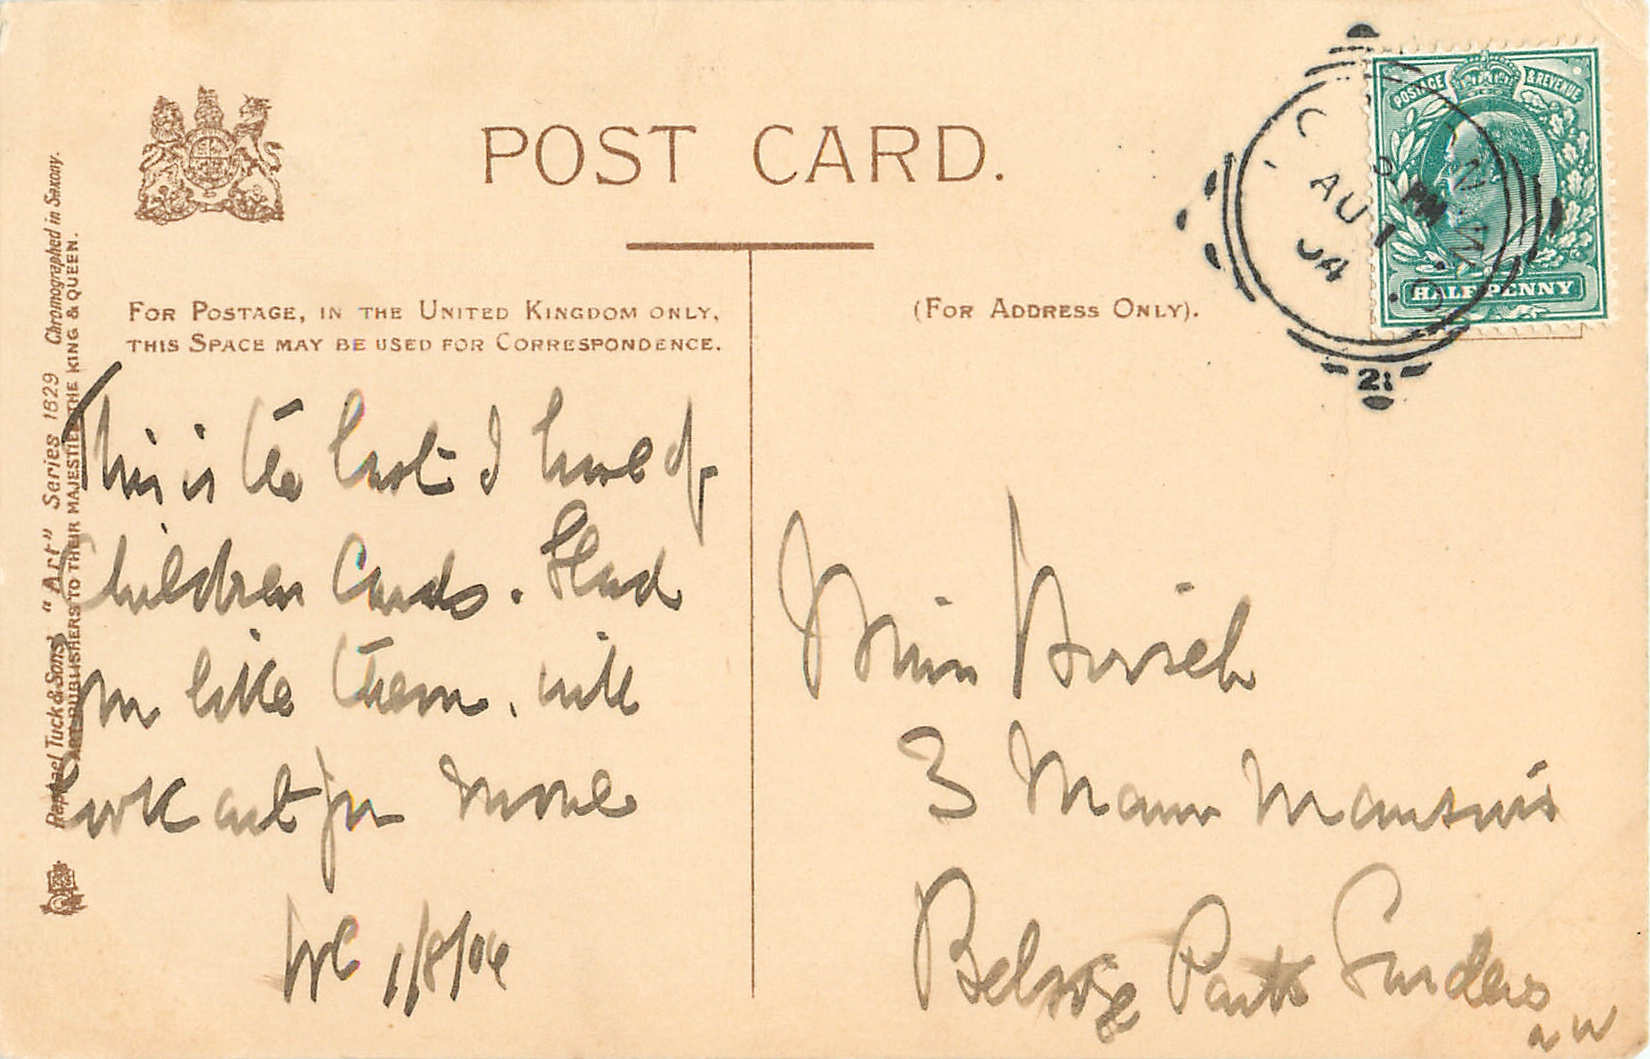 POST CARD.
FOR POSTAGE, IN THE UNITED KINGDOM ONLY,
THIS SPACE MAY BE USED FOR CORRESPONDENCE.
(FOR ADDRESS ONLY).
Raphael Tuck & Sons' "Art" Series 1629 Chromographed in Saxony.
ART PUBLISHERS TO THEIR MAJESTIES THE KING & QUEEN.
POSTAGE & REVENUE
HALFPENNY
LONDON. W.C.
PM
AU 1
04
21
This is the last I have of
Children Cards. Glad
you like them. will
look out for more
1/8/04
Miss Hirsch
3 Manor Mansions
Belsize Park Gardens
NW